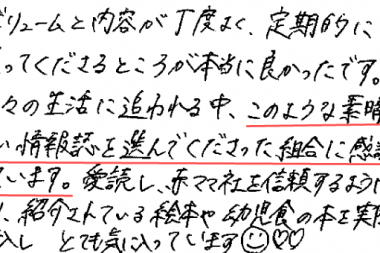 ボリュームと内容が丁度よく、定期的に
ってくださるところが本当に良かったです。
々の生活に追われる中、このような素晴
い情報誌を選んでくださった組合に感謝
ています。愛読し、赤ママ社を信頼するように
、紹介されている絵本や幼児食の本を実際
入し とても気に入っています☺♡♡